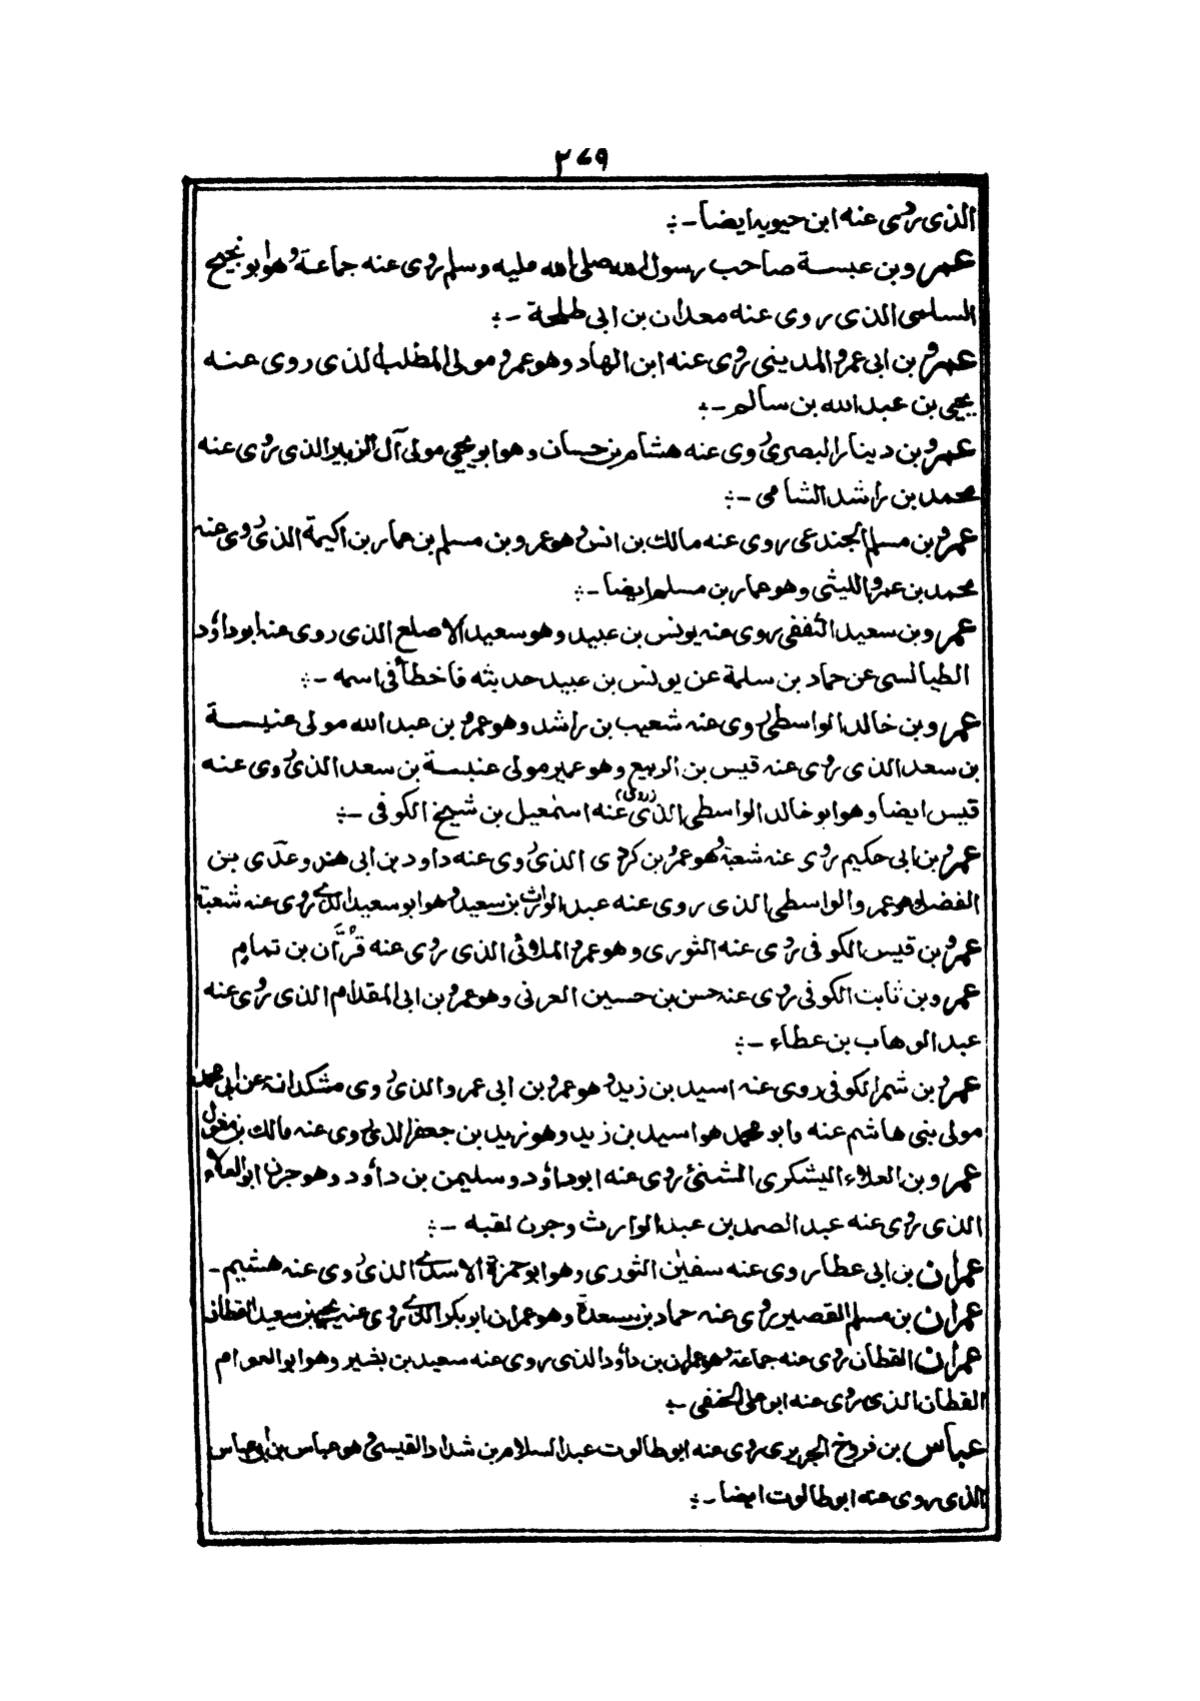 ٢٦٩
الذى روى عنه ابن حيويه ايضا -:
عمرو بن عبسة صاحب رسول الله صلى الله عليه وسلم روى عنه جماعة وهو ابو نجيح
السلمى الذى روى عنه معدان بن ابى طلحة -:
عمرو بن ابى عمرو المدينى روى عنه ابن الهاد وهو عمرو مولى المطلب الذى روى عنه
يحيى بن عبد الله بن سالم -:
عمرو بن دينار البصرى روى عنه هشام بن حسان وهو ابو يحيى مولى آل الزبير الذى روى عنه
محمد بن راشد الشامى -:
عمرو بن مسلم الجندعى روى عنه مالك بن انس وهو عمرو بن مسلم بن عمار بن اكيمة الذى روى عنه
محمد بن عمرو الليثى وهو عمار بن مسلم ايضا -:
عمرو بن سعيد الثقفى روى عنه يونس بن عبيد وهو سعيد الاصلع الذى روى عنه ابو داؤد
الطيالسى عن حماد بن سلمة عن يونس بن عبيد حديثه فاخطأ فى اسمه -:
عمرو بن خالد الواسطى روى عنه شعيب بن راشد وهو عمرو بن عبد الله مولى عنبسة
بن سعد الذى روى عنه قيس بن الربيع وهو عمير مولى عنبسة بن سعد الذى روى عنه
قيس ايضا وهو ابو خالد الواسطى الذى (روى) عنه اسمٰعيل بن شيخ الكوفى -:
عمرو بن ابى حكيم روى عنه شعبة وهو عمرو بن كردى الذى روى عنه داود بن ابى هند وعدى بن
الفضل وهو عمرو الواسطى الذى روى عنه عبد الوارث بن سعيد وهو ابو سعيد الذى روى عنه شعبة
عمرو بن قيس الكوفى روى عنه الثورى وهو عمرو الملائى الذى روى عنه قرّان بن تمام
عمرو بن ثابت الكوفى روى عنه حسن بن حسين العرنى وهو عمرو بن ابى المقدام الذى روى عنه
عبد الوهاب بن عطاء -:
عمرو بن شمر الكوفى روى عنه اسيد بن زيد وهو عمرو بن ابى عمرو الذى روى مشكدانة عن ابى محمد
مولى بنى هاشم عنه وابو محمد هو اسيد بن زيد وهو زيد بن جعفر الذى روى عنه مالك بن مغول
عمرو بن العلاء اليشكرى الشنى روى عنه ابو داؤد وسليمن بن داؤد وهو جرن ابو العلاء
الذى روى عنه عبد الصمد بن عبد الوارث وجرن لقبه -:
عمران بن ابى عطا روى عنه سفيٰن الثورى وهو ابو حمزة الاسدى الذى روى عنه هشيم -
عمران بن مسلم القصير روى عنه حماد بن مسعدة وهو عمران ابو بكر الذى روى عنه يحيى بن سعيد القطان
عمران القطان روى عنه جماعة وهو عمران بن داؤد الذى روى عنه سعيد بن بشير وهو ابو العوام
القطان الذى روى عنه ابو على الحنفى -:
عباس بن فروخ الجريرى روى عنه ابو طالوت عبد السلام بن شداد القيسى وهو عباس بن ابى عباس
الذى روى عنه ابو طالوت ايضا -: